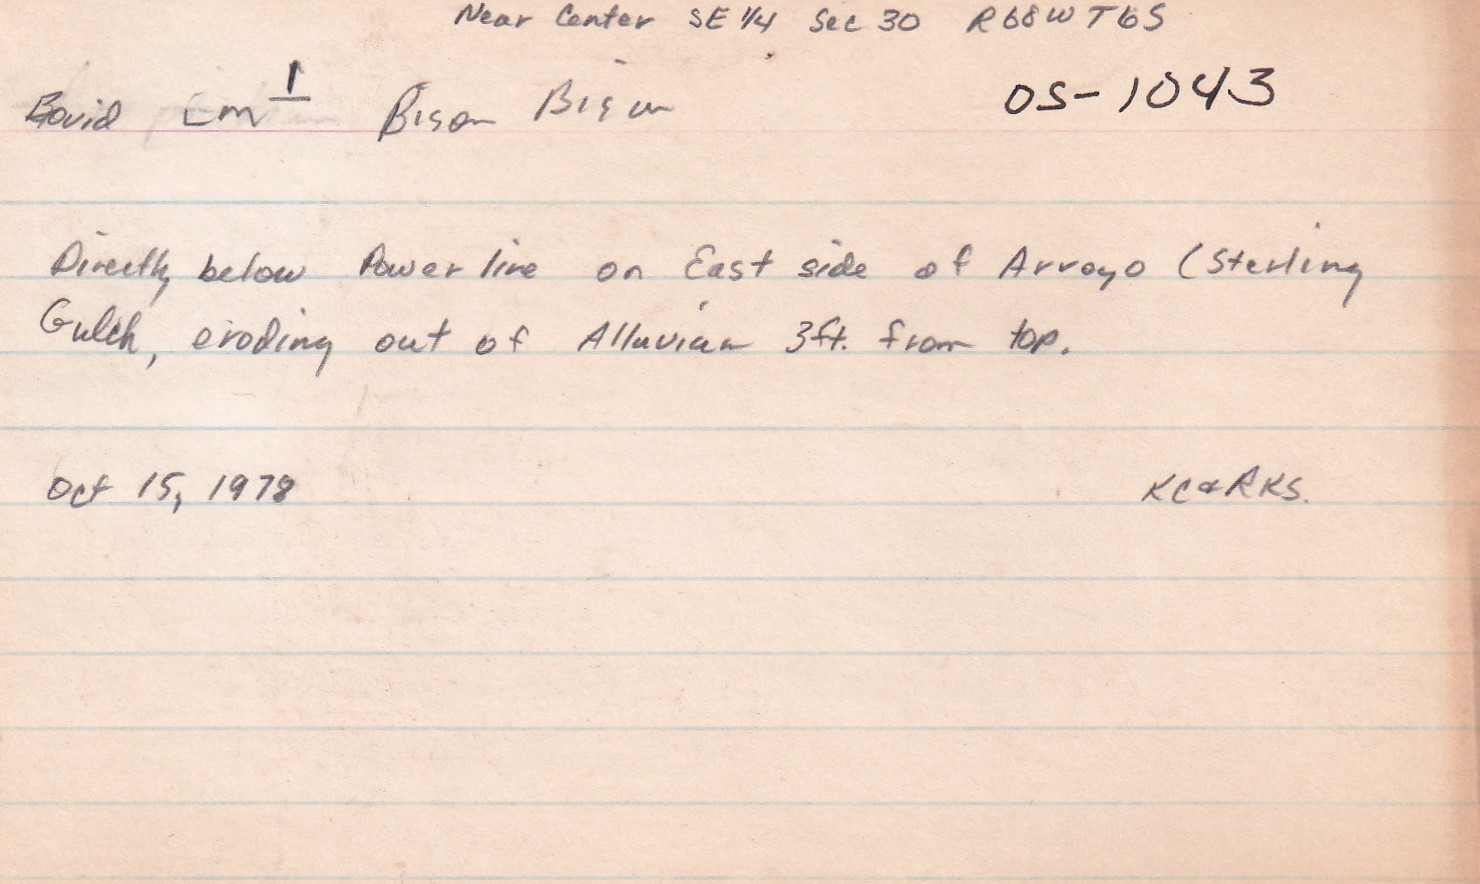 Near Center SE 1/4 Sec 30 R68W T6S
Bovid Lm 1 Bison Bison OS-1043
Directly below Power line on East side of Arroyo (Sterling
Gulch, eroding out of Alluvian 3ft. from top.
Oct 15, 1978 KC & RKS.